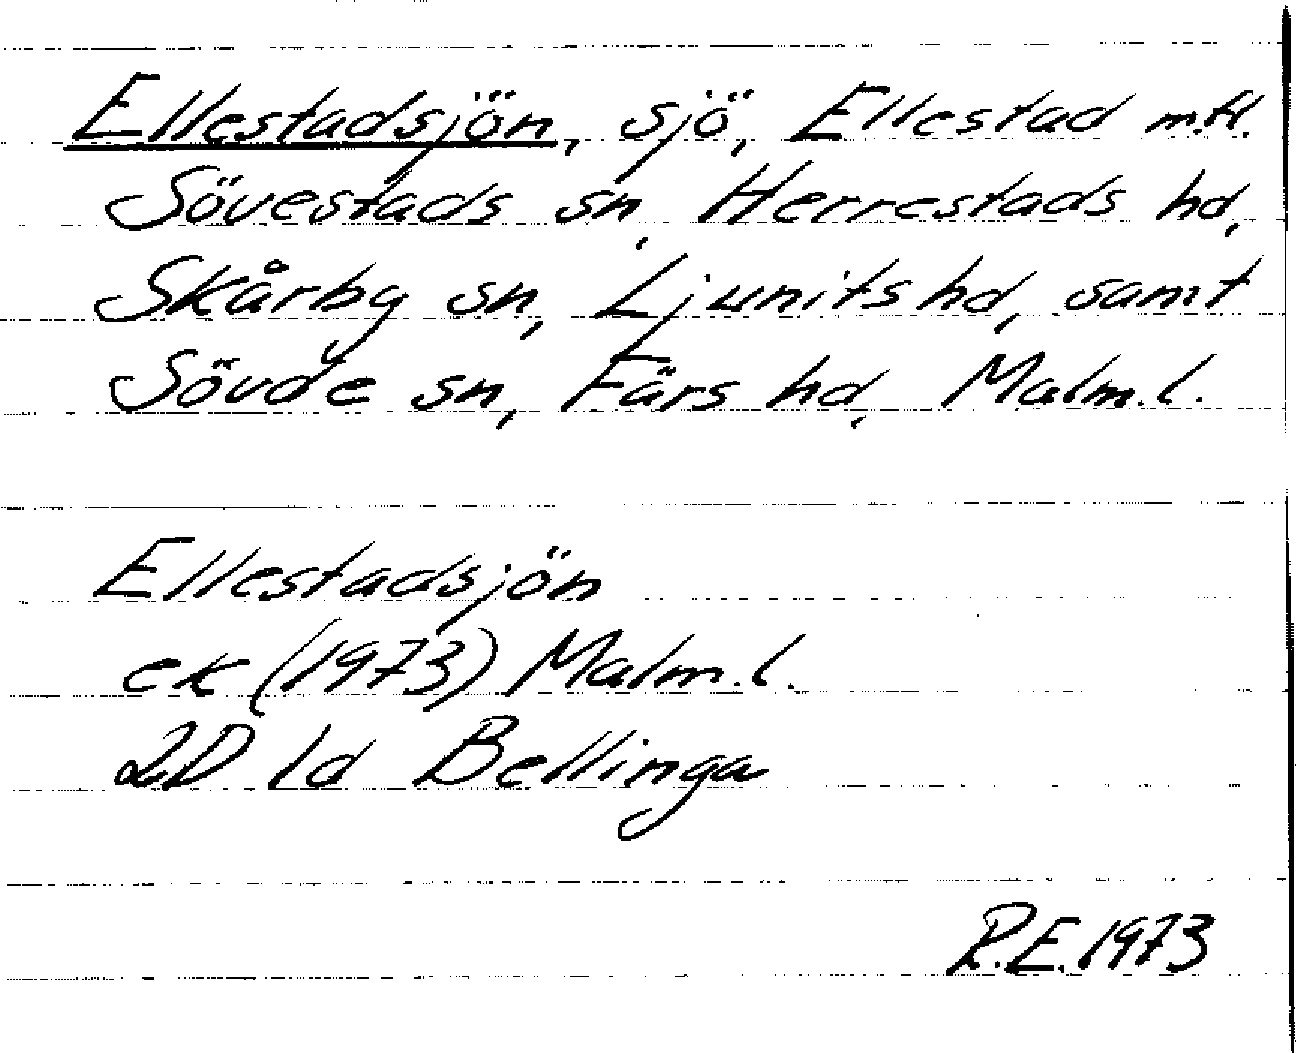 Ellestadsjön, sjö, Ellestad m.fl.
Sövestads sn, Herrestads hd,
Skårby sn, Ljunits hd, samt
Sövde sn, Färs hd, Malm.l.
Ellestadsjön
ek (1973) Malm.l.
2D 1d Bellinga
R.E. 1973